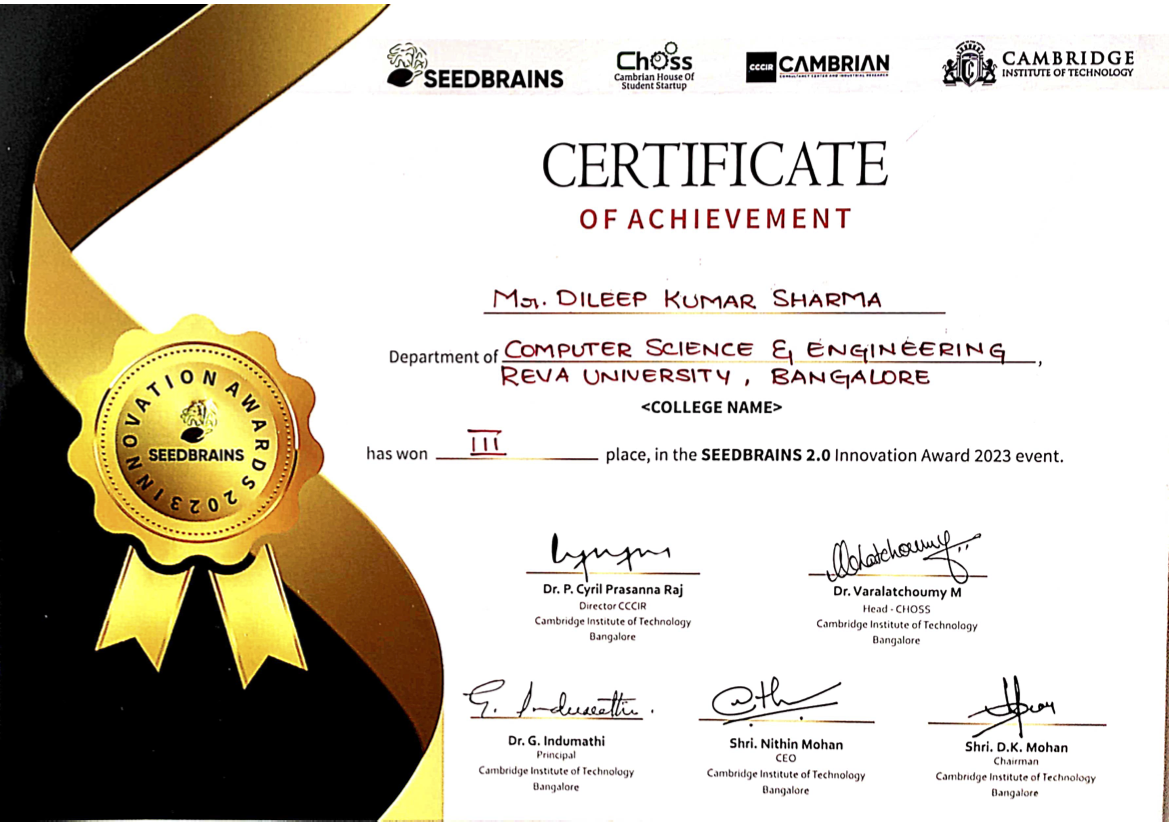 SEEDBRAINS
Choss
Cambrian House Of
Student Startup
CCCIR CAMBRIAN
CONSULTANCY CENTER AND INDUSTRIAL RESEARCH
CAMBRIDGE
INSTITUTE OF TECHNOLOGY
CERTIFICATE
OF ACHIEVEMENT
Mr. DILEEP KUMAR SHARMA
Department of COMPUTER SCIENCE & ENGINEERING,
REVA UNIVERSITY, BANGALORE
<COLLEGE NAME>
has won III place, in the SEEDBRAINS 2.0 Innovation Award 2023 event.
INNOVATION AWARDS 2023
SEEDBRAINS
Dr. P. Cyril Prasanna Raj
Director CCCIR
Cambridge Institute of Technology
Bangalore
Dr. Varalatchoumy M
Head - CHOSS
Cambridge Institute of Technology
Bangalore
G. Indumathi.
Dr. G. Indumathi
Principal
Cambridge Institute of Technology
Bangalore
Shri. Nithin Mohan
CEO
Cambridge Institute of Technology
Bangalore
Shri. D.K. Mohan
Chairman
Cambridge Institute of Technology
Bangalore